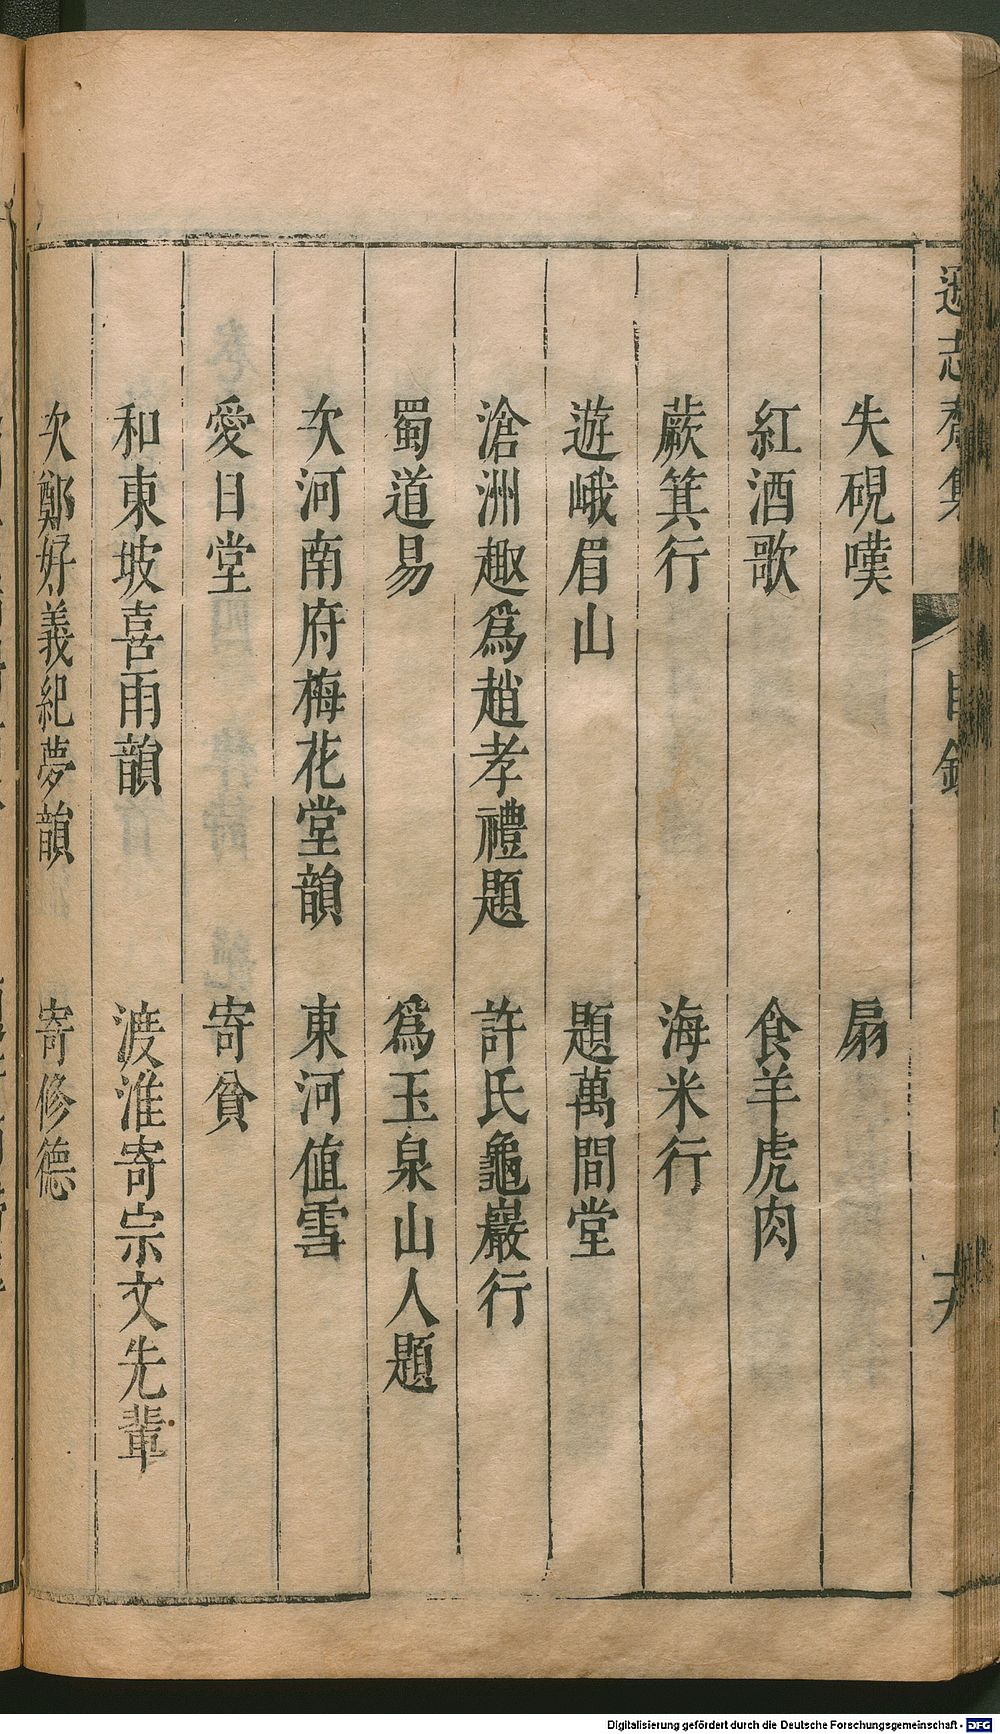 遜志齋集 目錄
失硯嘆 扇
紅酒歌 食羊虎肉
蕨箕行 海米行
遊峨眉山 題萬間堂
滄洲趣爲趙孝禮題 許氏龜巖行
蜀道易 爲玉泉山人題
次河南府梅花堂韻 東河值雪
愛日堂 寄貧
和東坡喜雨韻 渡淮寄宗文先輩
次鄭好義紀夢韻 寄修德
Digitalisierung gefördert durch die Deutsche Forschungsgemeinschaft - DFG